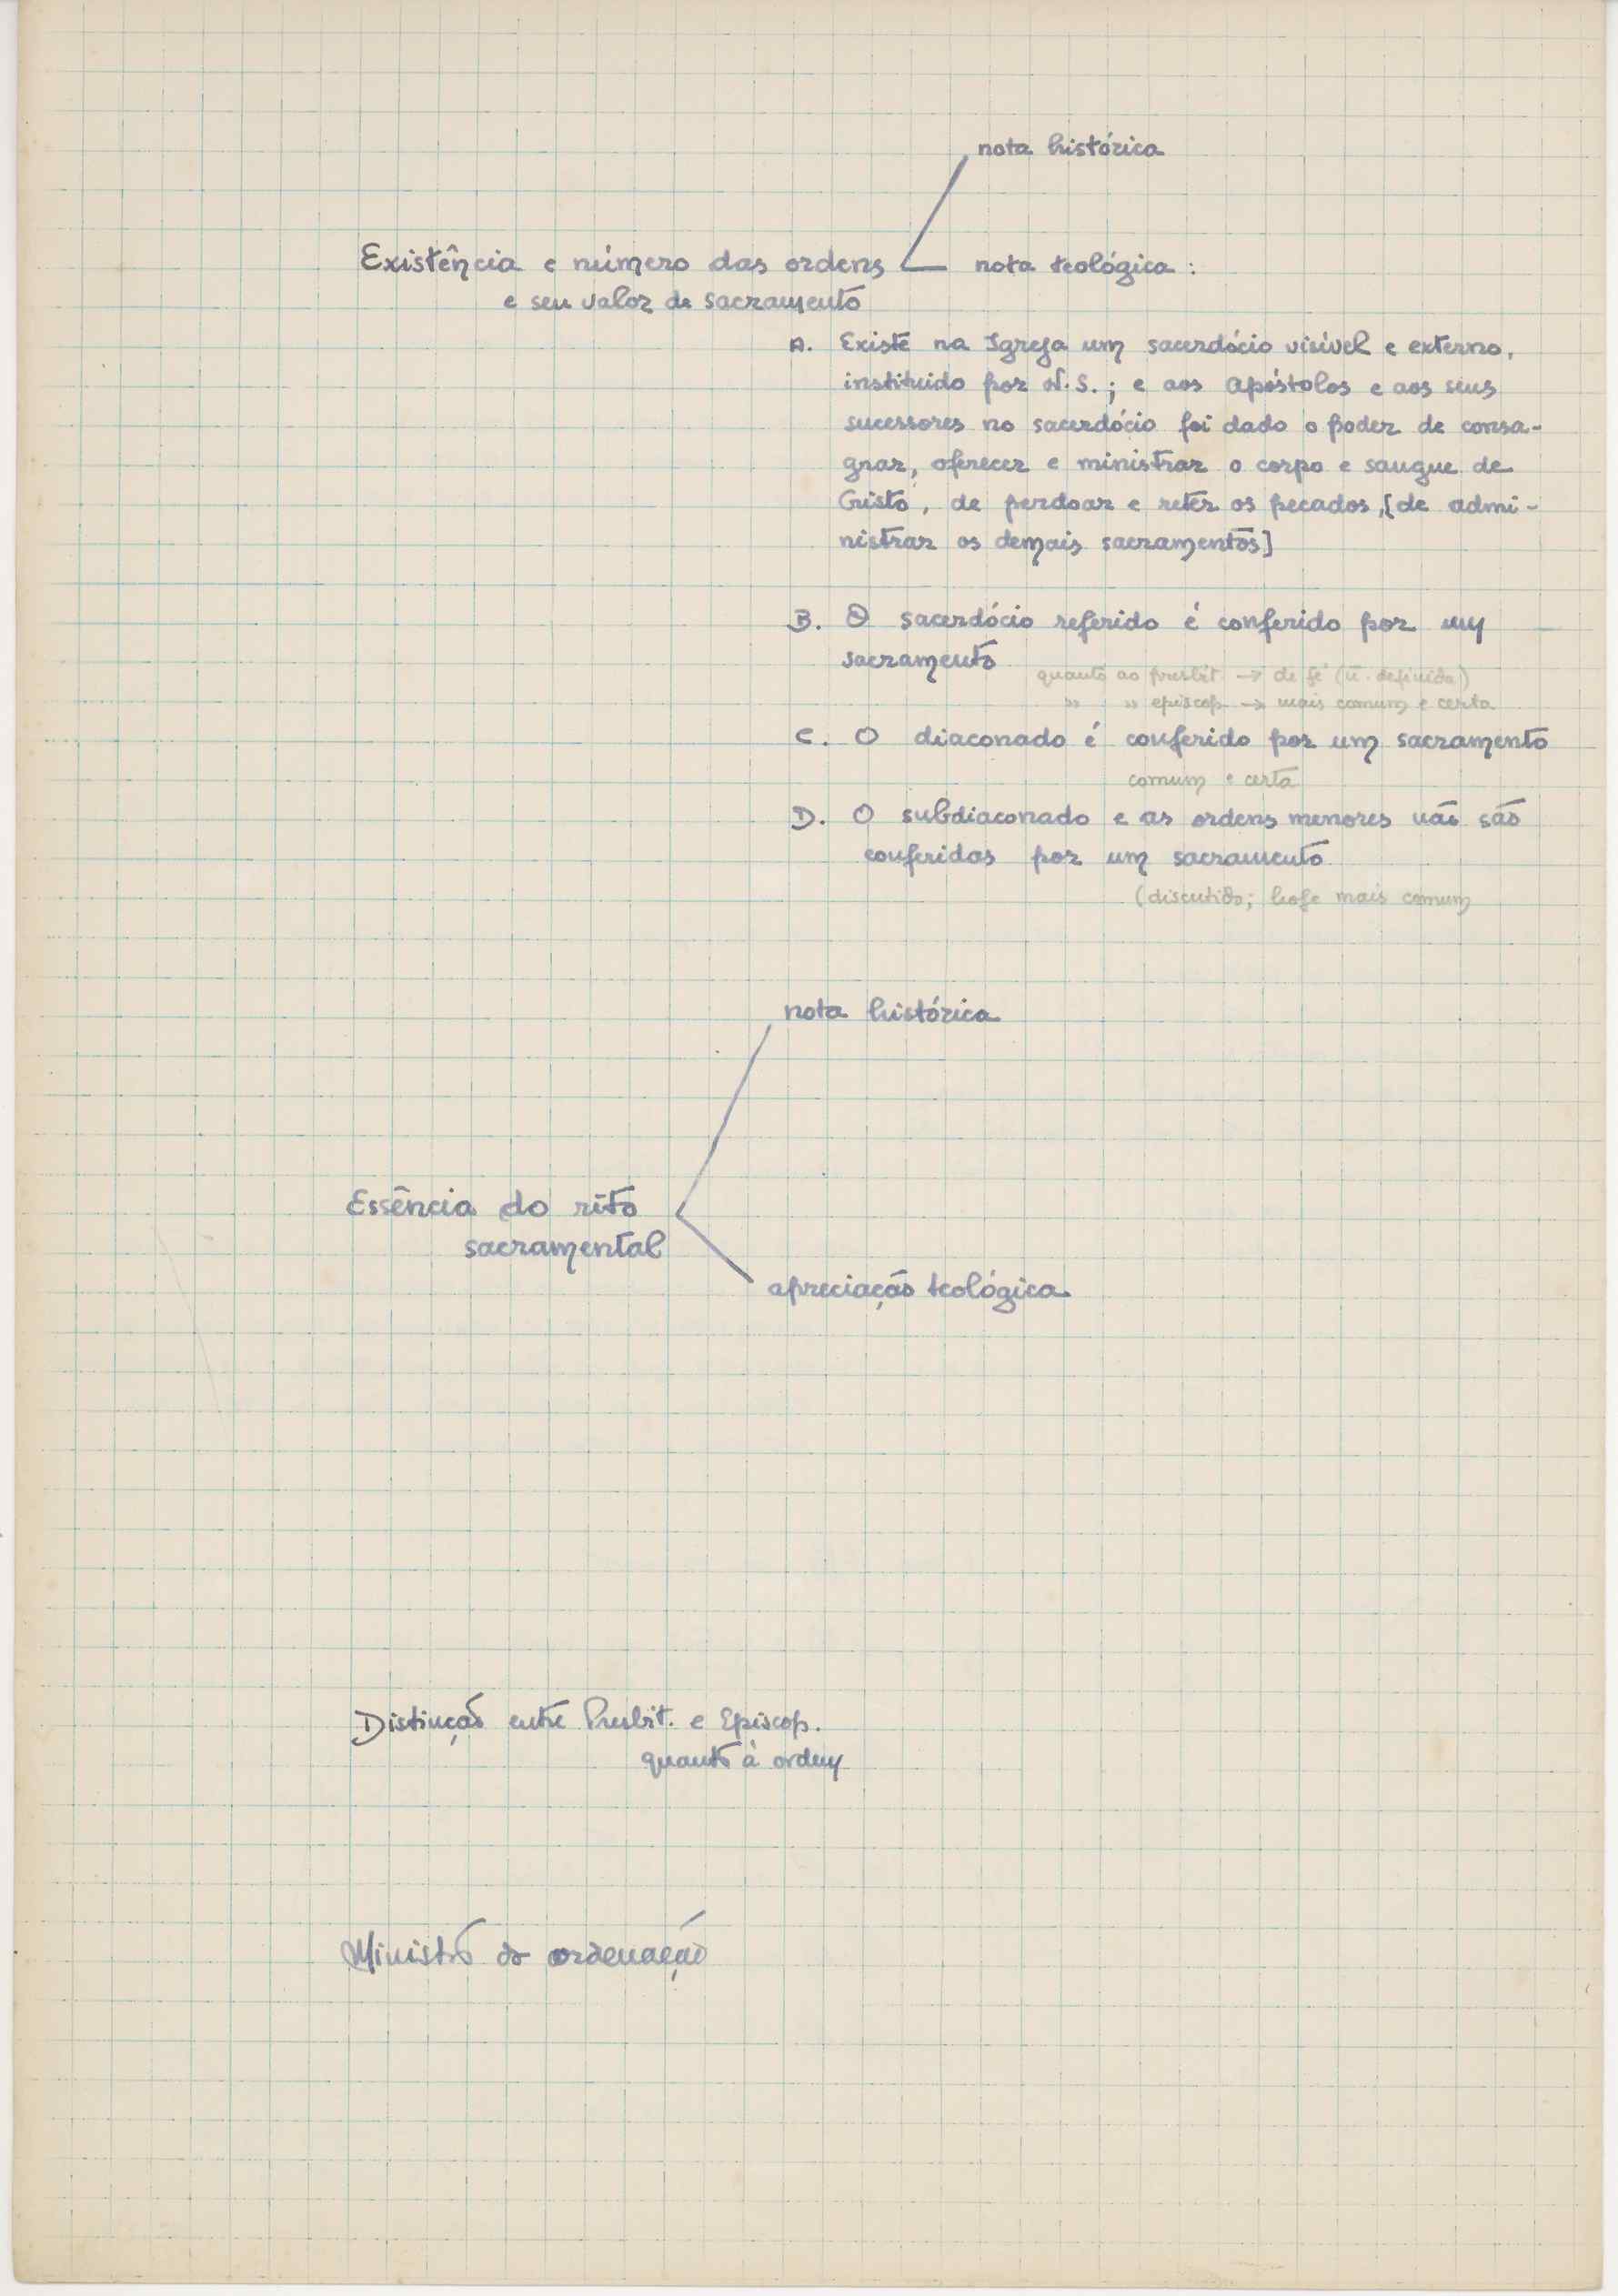 nota histórica
Existência e número das ordens
nota teológica :
e seu valor de sacramento
A. Existe na Igreja um sacerdócio visível e externo,
instituido por N.S. ; e aos apóstolos e aos seus
sucessores no sacerdócio foi dado o poder de consa-
grar, oferecer e ministrar o corpo e sangue de
Cristo, de perdoar e reter os pecados, [de admi-
nistrar os demais sacramentos]
B. O sacerdócio referido é conferido por um
sacramento
quanto ao presbit. → de fé (ñ. definida)
" " episcop. → mais comum e certa
C. O diaconado é conferido por um sacramento
comum e certa
D. O subdiaconado e as ordens menores não são
conferidas por um sacramento
(discutido; hoje mais comum
nota histórica
Essência do rito
sacramental
apreciação teológica
Distinção entre Presbit. e Episcop.
quanto à ordem
Ministro da ordenação